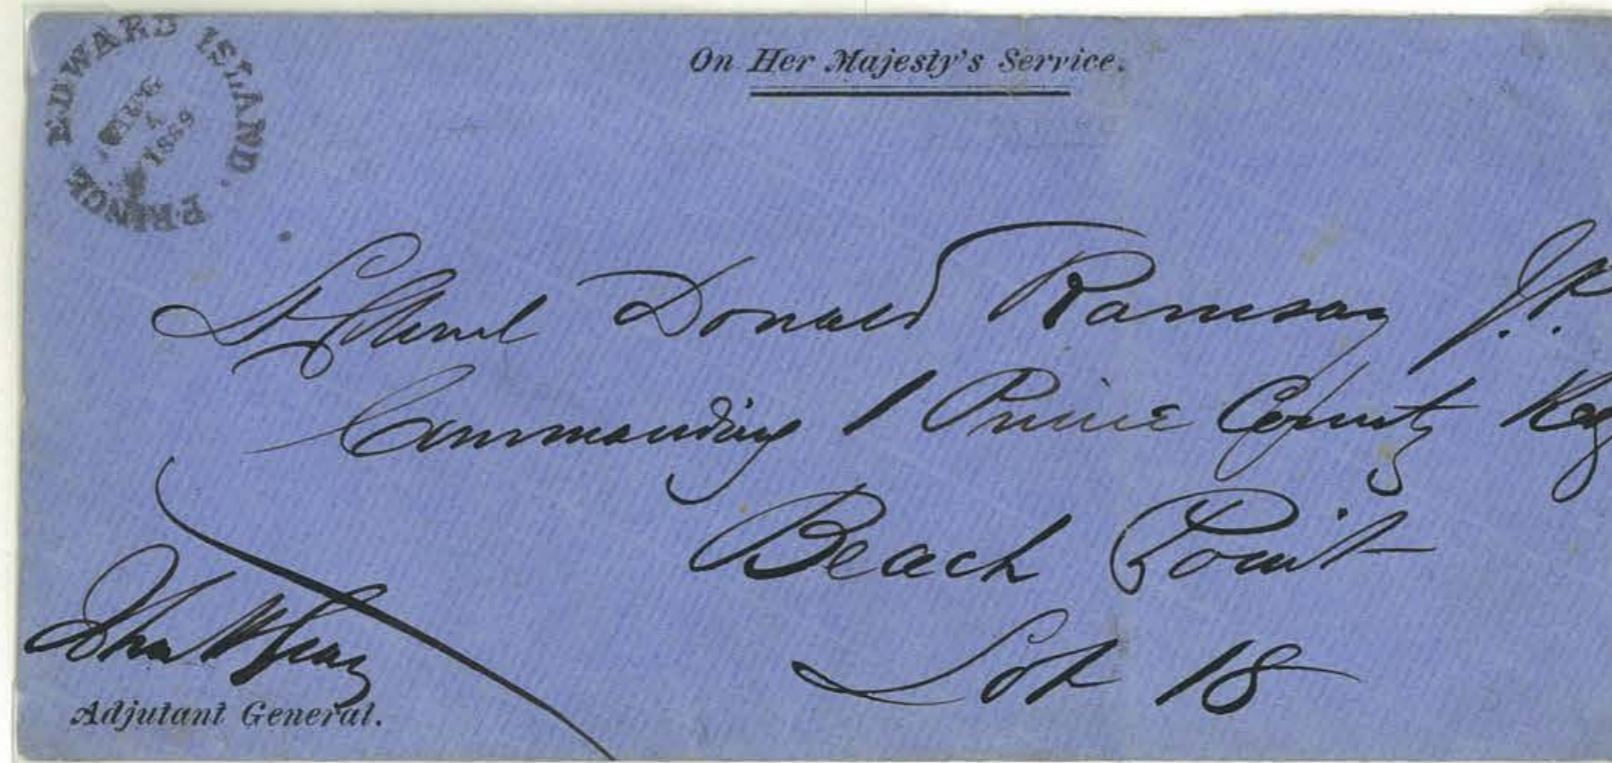 PRINCE EDWARD ISLAND.
On Her Majesty's Service.
Lt Colonel Donald Ramsay J.P.
Commanding 1 Prince County Reg
Beach Point
Lot 18
John H Gray
Adjutant General.